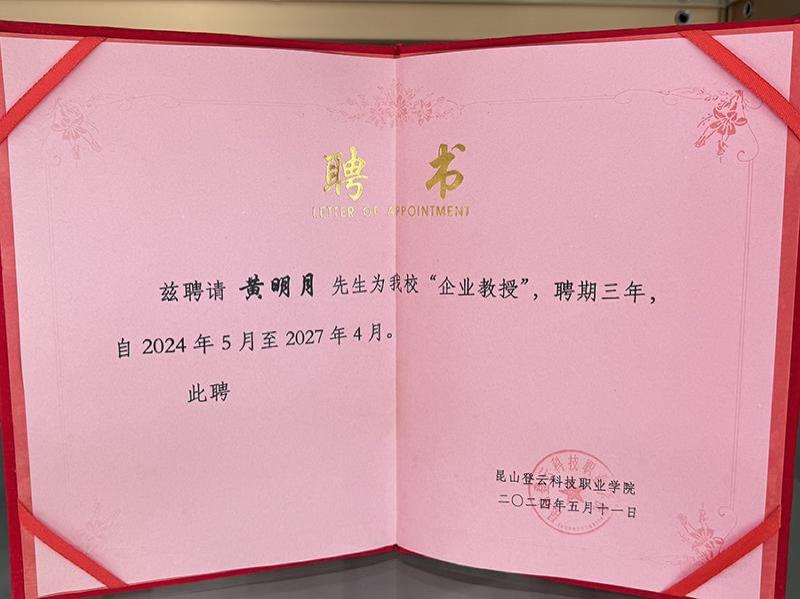 聘 书
LETTER OF APPOINTMENT
兹聘请 黄明月 先生为我校“企业教授”，聘期三年，
自 2024 年 5 月至 2027 年 4 月。
此聘
昆山登云科技职业学院
二〇二四年五月十一日